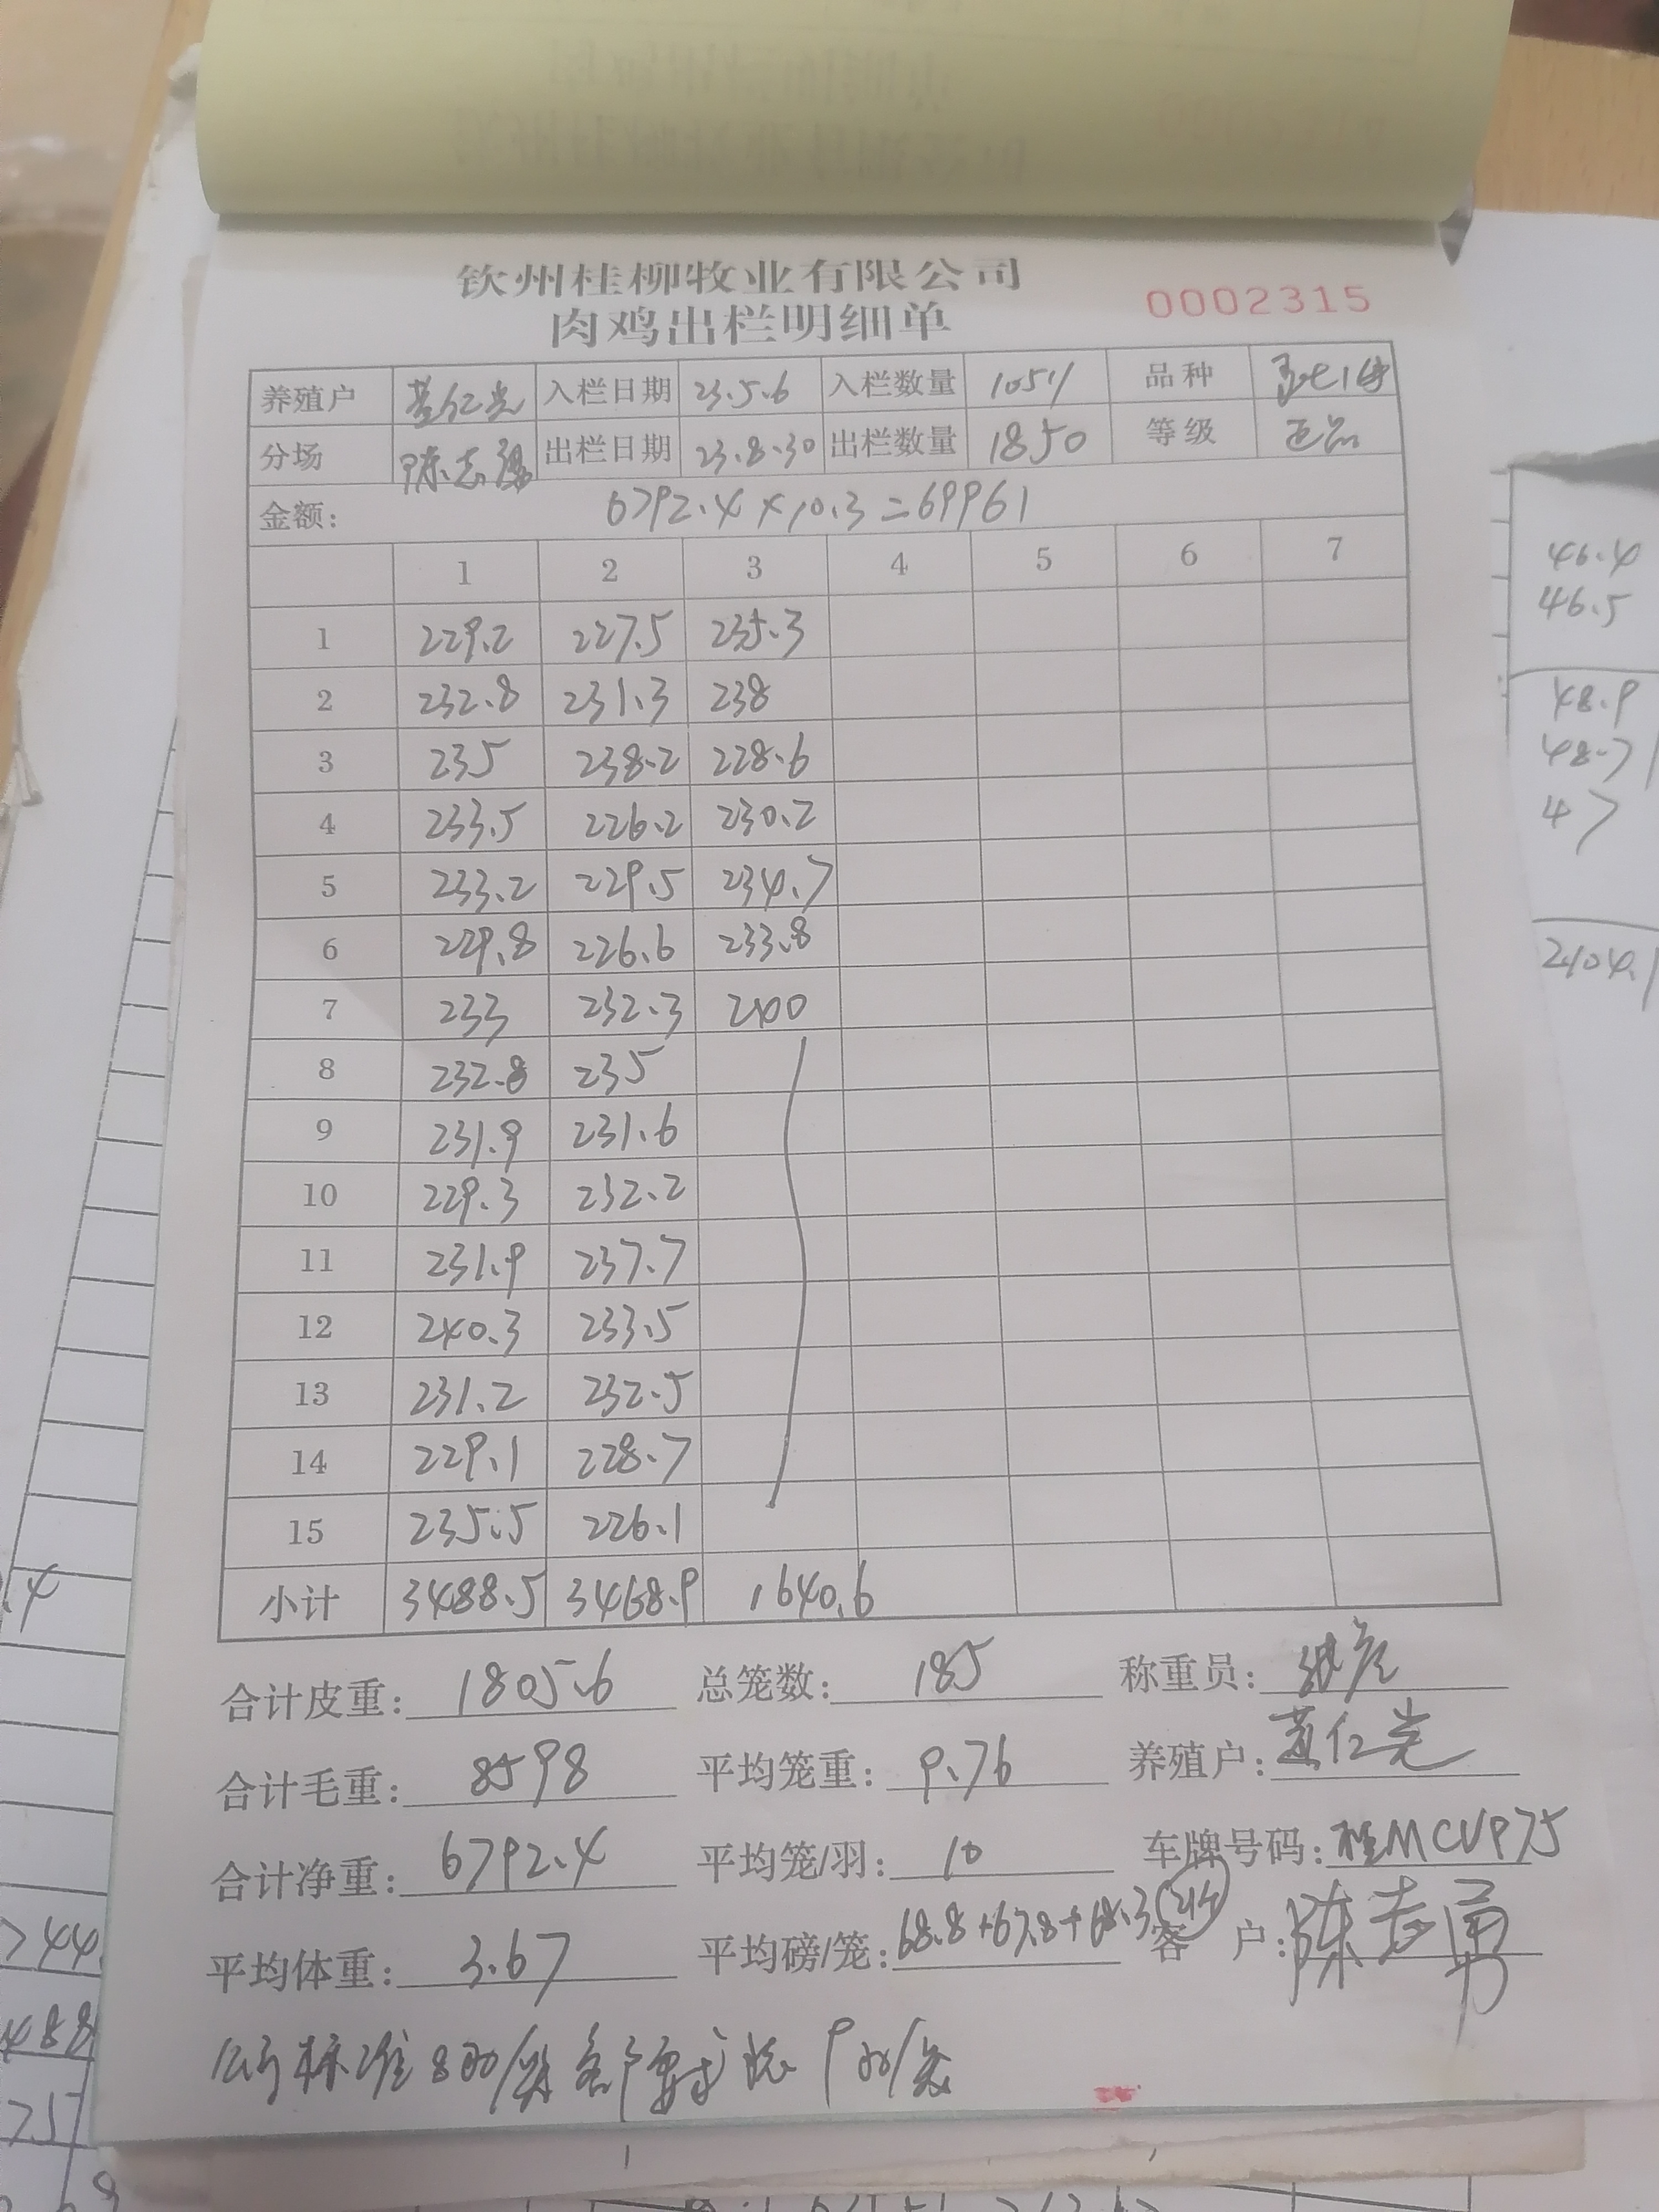 钦州桂柳牧业有限公司
肉鸡出栏明细单 0002315
养殖户 黄仁光 入栏日期 23.5.6 入栏数量 品种
分场 陈志勇 出栏日期 23.8.30 出栏数量 1850 等级 正品
金额: 6792.4×10.3=69961
1 2 3 4 5 6 7
1 229.2 227.5 235.3
2 232.8 231.3 238
3 235 238.2 228.6
4 233.5 226.2 230.2
5 233.2 229.5 234.7
6 229.8 226.6 233.8
7 233 232.3 240
8 232.8 235
9 231.9 231.6
10 229.3 232.2
11 231.9 237.7
12 240.3 233.5
13 231.2 232.5
14 229.1 228.7
15 235.5 226.1
小计 3488.5 3468.9 1640.6
合计皮重: 1805.6 总笼数: 185 称重员:
合计毛重: 8598 平均笼重: 9.76 养殖户: 黄仁光
合计净重: 6792.4 平均笼/羽: 10 车牌号码: 桂MCVP75
平均体重: 3.67 平均磅/笼: 68.8+67.8+68.3 客 户: 陈志勇
公司标准8 客户要求装9
46.4
46.5
48.9
48.7
47
2404.1